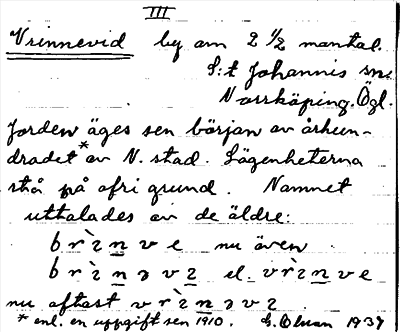 III
Vrinnevid by om 2 1/2 mantal.
S:t Johannis sn.
Norrköping. Ögl.
Jorden äges sen början av århun-
dradet* av N. stad. Lägenheterna
stå på ofri grund. Namnet
uttalades av de äldre:
brìnve nu även
brìnəvɪ el. vrìnve
nu oftast vrìnəvɪ
* enl. en uppgift sen 1910. G. Olson 1937